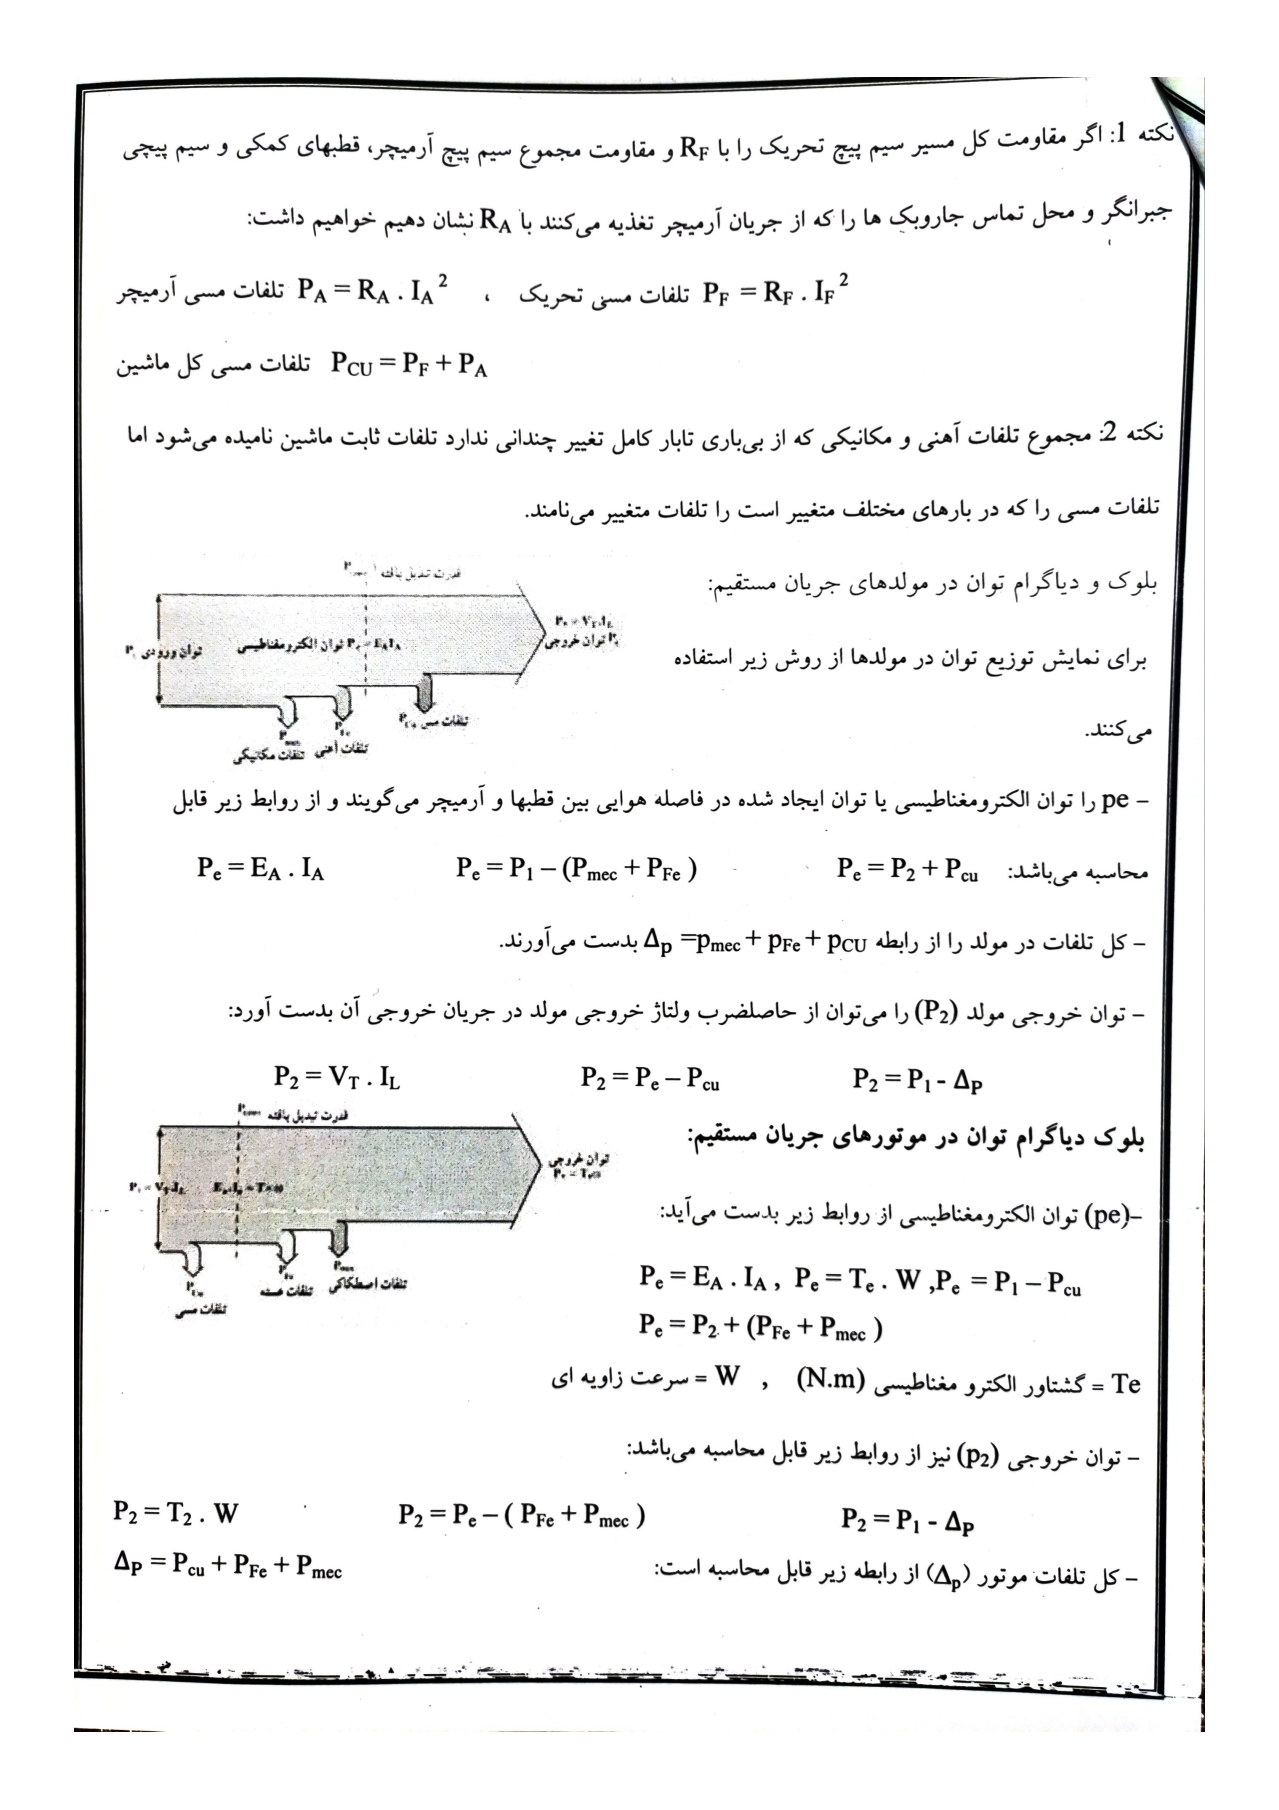 نکته 1: اگر مقاومت کل مسیر سیم پیچ تحریک را با RF و مقاومت مجموع سیم پیچ آرمیچر، قطبهای کمکی و سیم پیچی
جبرانگر و محل تماس جاروبک ها را که از جریان آرمیچر تغذیه می‌کنند با RA نشان دهیم خواهیم داشت:
تلفات مسی آرمیچر PA = RA . IA² ، تلفات مسی تحریک PF = RF . IF²
تلفات مسی کل ماشین PCU = PF + PA
نکته 2: مجموع تلفات آهنی و مکانیکی که از بی‌باری تابار کامل تغییر چندانی ندارد تلفات ثابت ماشین نامیده می‌شود اما
تلفات مسی را که در بارهای مختلف متغییر است را تلفات متغییر می‌نامند.
بلوک و دیاگرام توان در مولدهای جریان مستقیم:
برای نمایش توزیع توان در مولدها از روش زیر استفاده
می‌کنند.
قدرت تبدیل یافته
توان ورودی P1
توان الکترومغناطیسی Pe = EAIA
P2 = VT.IL
توان خروجی P2
Pmec
تلفات مکانیکی
PFe
تلفات آهنی
PCu تلفات مس
– pe را توان الکترومغناطیسی یا توان ایجاد شده در فاصله هوایی بین قطبها و آرمیچر می‌گویند و از روابط زیر قابل
محاسبه می‌باشد: Pe = P2 + Pcu Pe = P1 – (Pmec + PFe ) Pe = EA . IA
– کل تلفات در مولد را از رابطه Δp =pmec + pFe + pCU بدست می‌آورند.
– توان خروجی مولد (P2) را می‌توان از حاصلضرب ولتاژ خروجی مولد در جریان خروجی آن بدست آورد:
P2 = VT . IL P2 = Pe – Pcu P2 = P1 - ΔP
بلوک دیاگرام توان در موتورهای جریان مستقیم:
قدرت تبدیل یافته
P1 = VT.IL
توان خروجی
PCu
تلفات مسی
PFe
تلفات هسته
تلفات اصطکاکی
–(pe) توان الکترومغناطیسی از روابط زیر بدست می‌آید:
Pe = EA . IA , Pe = Te . W ,Pe = P1 – Pcu
Pe = P2 + (PFe + Pmec )
Te = گشتاور الکترو مغناطیسی (N.m) , W = سرعت زاویه ای
– توان خروجی (p2) نیز از روابط زیر قابل محاسبه می‌باشد:
P2 = T2 . W P2 = Pe – ( PFe + Pmec ) P2 = P1 - ΔP
– کل تلفات موتور (Δp) از رابطه زیر قابل محاسبه است: ΔP = Pcu + PFe + Pmec